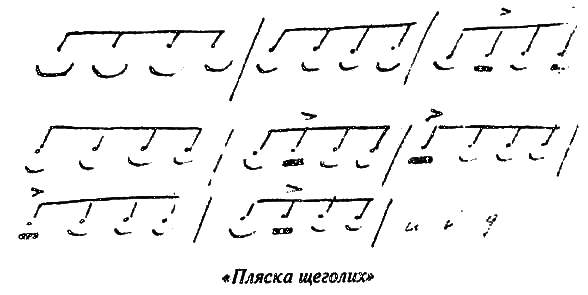 и т д
«Пляска щеголих»